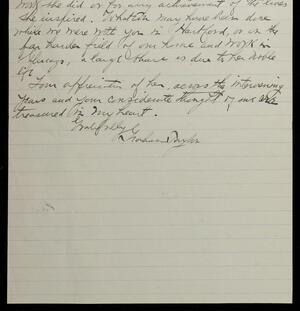 work she did or for any achievement of the lives
she inspired. Whatever may have been done
while we were with you in Hartford, or in the
far harder field of our home and work in
Chicago, a large share is due to her noble
life.
Your appreciation of her, across the intervening
years and your considerate thought of me are
treasured in my heart.
Gratefully
Graham Taylor